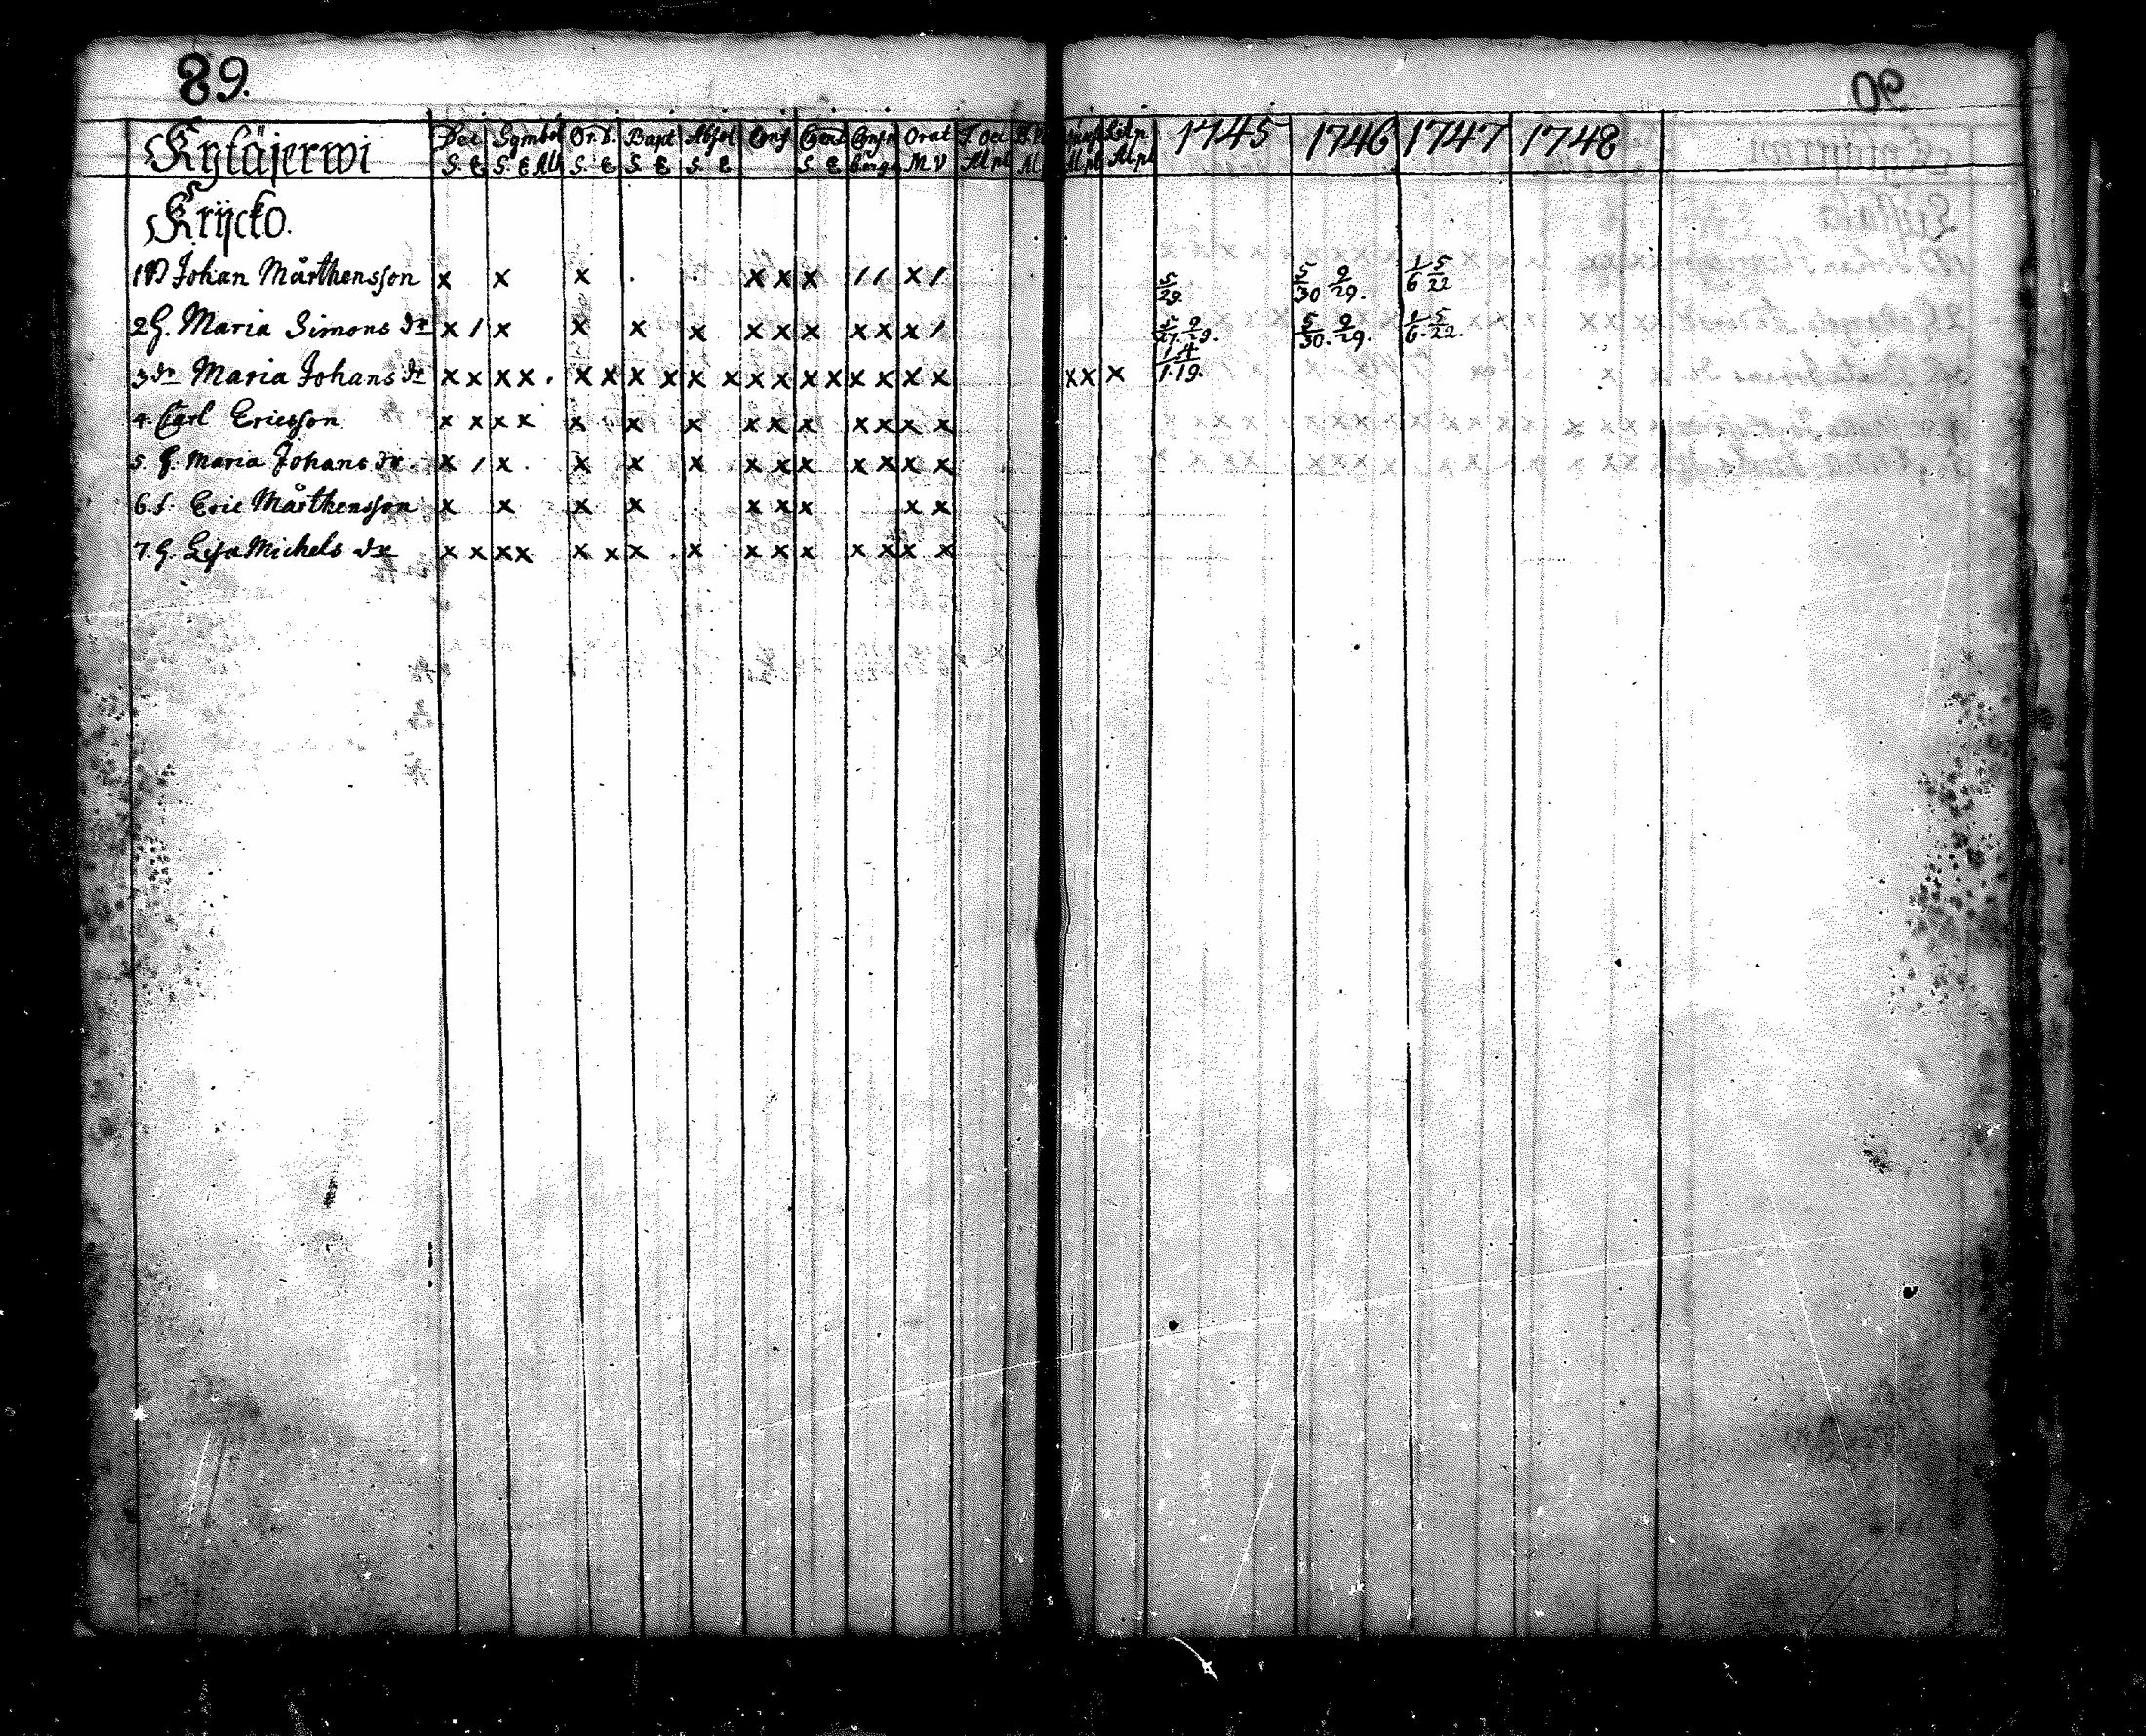 89.
Kytäjerwi Dec Symbol Or. D. Bapt Absol Conf Cœna Consp Orat 1745 1746 1747 1748
S. E S. E Alt S. E S. E S. E S. E M V
Krijcko.
Johan Mårthensson x x x . . x x x / / x / 5/29 5/30 9/29. 1/6 5/22
2 H. Maria Simons dr x / x x x x x x x x x x / 5/27. 9/29. 5/30. 9/29. 1/6. 5/22.
3 dr Maria Johans dr x x x x . x x x x x x x x x x x x x x x x x x 1/1. 4/19.
4. Carl Ericsson x x x x x x x x x x x x x x
5. H. Maria Johans dr. x / x . x x x x x x x x x x
6 S. Eric Mårthensson x x x x x x x x x
7. H. Lisa Michels dr x x x x x x x . x x x x x x x x